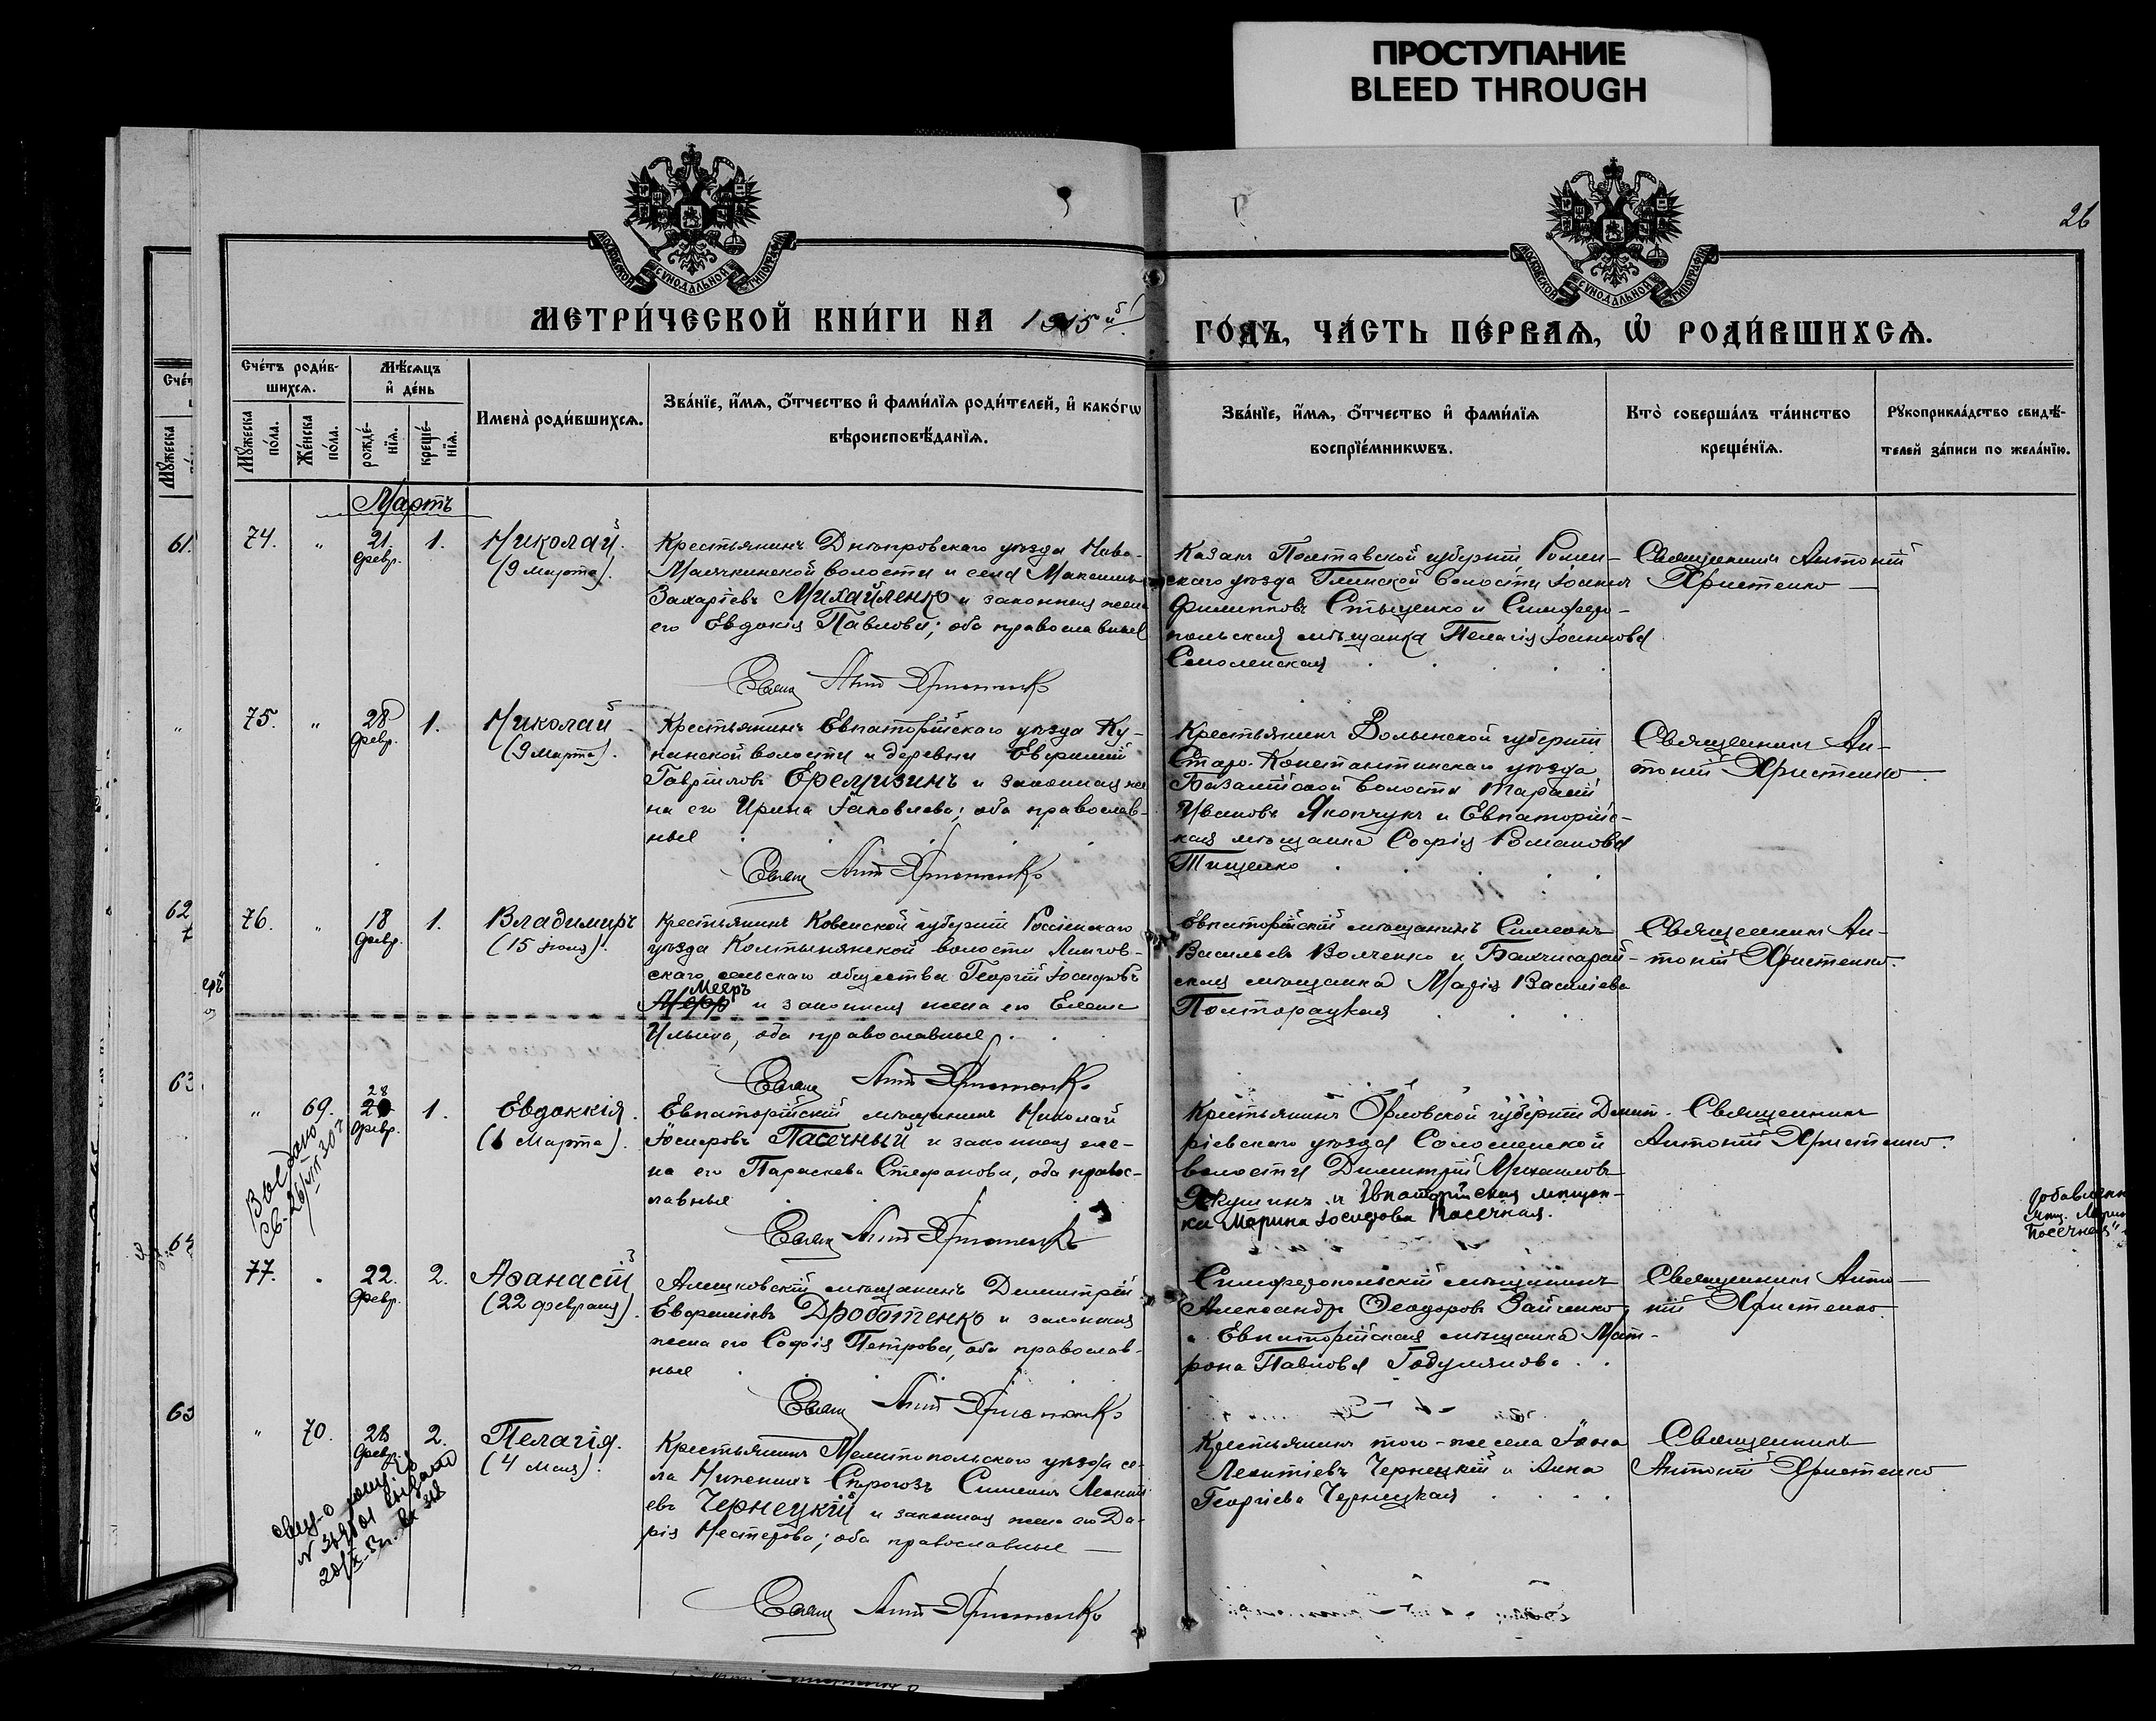 ПРОСТУПАНИЕ
BLEED THROUGH
26
МОСКОВСКОЙ СУНОДАЛЬНОЙ ТИПОГРАФІИ
МОСКОВСКОЙ СУНОДАЛЬНОЙ ТИПОГРАФІИ
МЕТРИ́ЧЕСКОЙ КНИ́ГИ НА 1915 й
ГО́ДЪ, ЧА́СТЬ ПЕ́РВАѦ, Ѡ҆ РОДИ́ВШИХСѦ.
Сче́тъ роди́в-
шихсѧ.
Мꙋ́жеска
по́ла.
Же́нска
по́ла.
Мѣ́сѧцъ
и҆ де́нь
рожде́-
нїѧ.
креще́-
нїѧ.
Имена̀ роди́вшихсѧ.
Зва́нїе, и҆́мѧ, ѻ҆́тчество и҆ фами́лїѧ роди́телей, и҆ како́гѡ
вѣроисповѣ́данїѧ.
Зва́нїе, и҆́мѧ, ѻ҆́тчество и҆ фами́лїѧ
воспрїе́мникѡвъ.
Кто̀ соверша́лъ та́инство
креще́нїѧ.
Рꙋкоприкла́дство свидѣ́-
телей за́писи по жела́нїю.
Мартъ
74. " 21. Февр. 1.
Николай.
(9 марта).
Крестьянинъ Днѣпровскаго уѣзда Ново-
Маячкинской волости и села Максимъ
Захаріевъ Михайленко и законная жена
его Евдокія Павлова; оба православные
Свящ Ант Христенко
Казакъ Полтавской губерніи Ромен-
скаго уѣзда Глинской волости Іоаннъ
Филипповъ Стыценко и Симферо-
польская мѣщанка Пелагія Іоаннова
Смоленская
Священникъ Антоній
Христенко
75. " 28 Февр. 1.
Николай
(9 марта).
Крестьянинъ Евпаторійскаго уѣзда Ку-
нанской волости и деревни Евфимій
Гавріиловъ Еремизинъ и законная же
на его Ирина Іаковлева; оба православ-
ные
Свящ Ант Христенко
Крестьянинъ Волынской губерніи
Старо-Константинскаго уѣзда
Базалійской волости Тарасій
Ивановъ Якопчукъ и Евпаторій-
ская мѣщанка Софія Романова
Тищенко
Священникъ Ан-
тоній Христенко
76. " 18 Февр. 1.
Владимиръ
(15 іюля).
Крестьянинъ Ковенской губерніи Россіенскаго
уѣзда Колтынянской волости
скаго сельскаго общества Георгій Іосифовъ
Мееръ
и законная жена его Елена
Ильина, оба православные
Свящ Ант Христенко
Евпаторійскій мѣщанинъ Симеонъ
Васильевъ Волченко и Бахчисарай-
ская мѣщанка Марія Василіева
Полторацкая
Священникъ Ан-
тоній Христенко.
" 69. 28 Февр. 1.
Евдоккія.
Евпаторійскій мѣщанинъ Николай
Іосифовъ Пасечный и законная же-
на его Параскева Стефанова, оба правос-
лавные
Свящ Ант Христенко
Крестьянинъ Орловской губерніи Дмит-
ріевскаго уѣзда Соломенской
волости Димитрій Михаиловъ
Якушинъ и Евпаторійская мѣщан-
ка Марина Іосифова Пасечная.
Священникъ
Антоній Христенко.
77. 22. Февр. 2.
Аѳанасій
(22 февраля).
Алешковскій мѣщанинъ Димитрій
Евфиміевъ Дроботенко и законная
жена его Софія Петрова, оба православ-
ные
Свящ Ант Христенко
Симферопольскій мѣщанинъ
Александръ Ѳеодоровъ Зайченко
и Евпаторійская мѣщанка Мат-
рона Павлова Годулянова
Священникъ Анто-
ній Христенко
" 70. 28 Февр. 2.
Пелагія.
(4 мая).
Крестьянинъ Мелитопольскаго уѣзда се-
ла Нижнихъ Сѣрогозъ Симеонъ Леонті
евъ Чернецкій и законная жена его Да-
рія Нестерова; оба православные
Свящ Ант Христенко
Крестьянинъ того-же села Іона
Леонтіевъ Чернецкій и Анна
Георгіева Чернецкая
Священникъ
Антоній Христенко